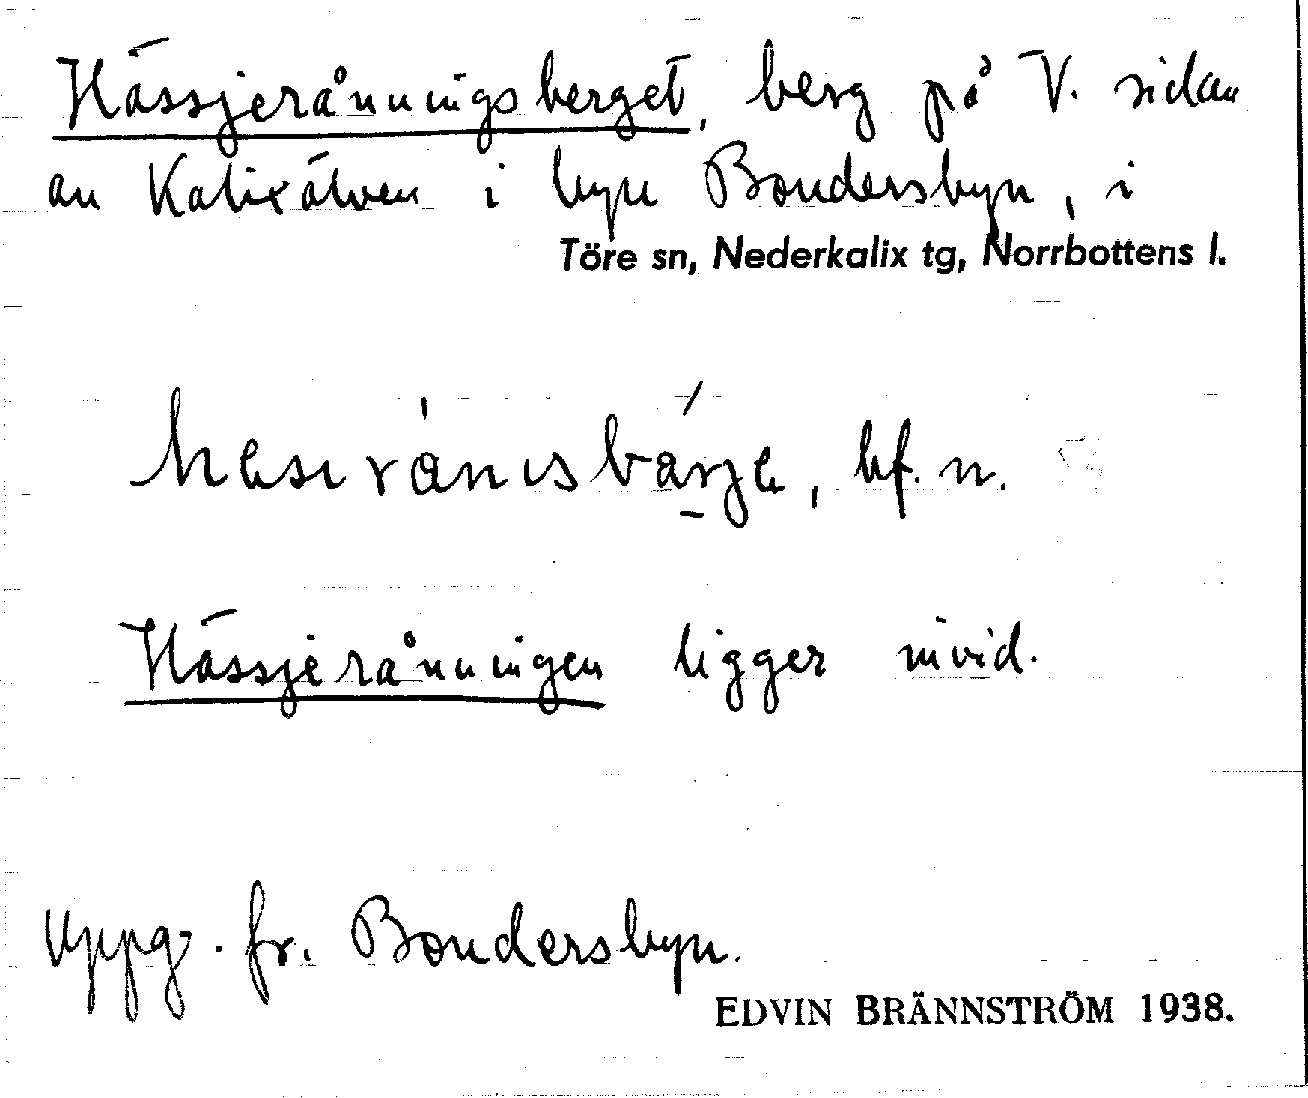 Hässjerånningsberget, berg på V. sidan
av Kalixälven i byn Bondersbyn, i
Töre sn, Nederkalix tg, Norrbottens l.
bf. n.
Hässjerånningen ligger invid.
Uppg. fr. Bondersbyn.
EDVIN BRÄNNSTRÖM 1938.